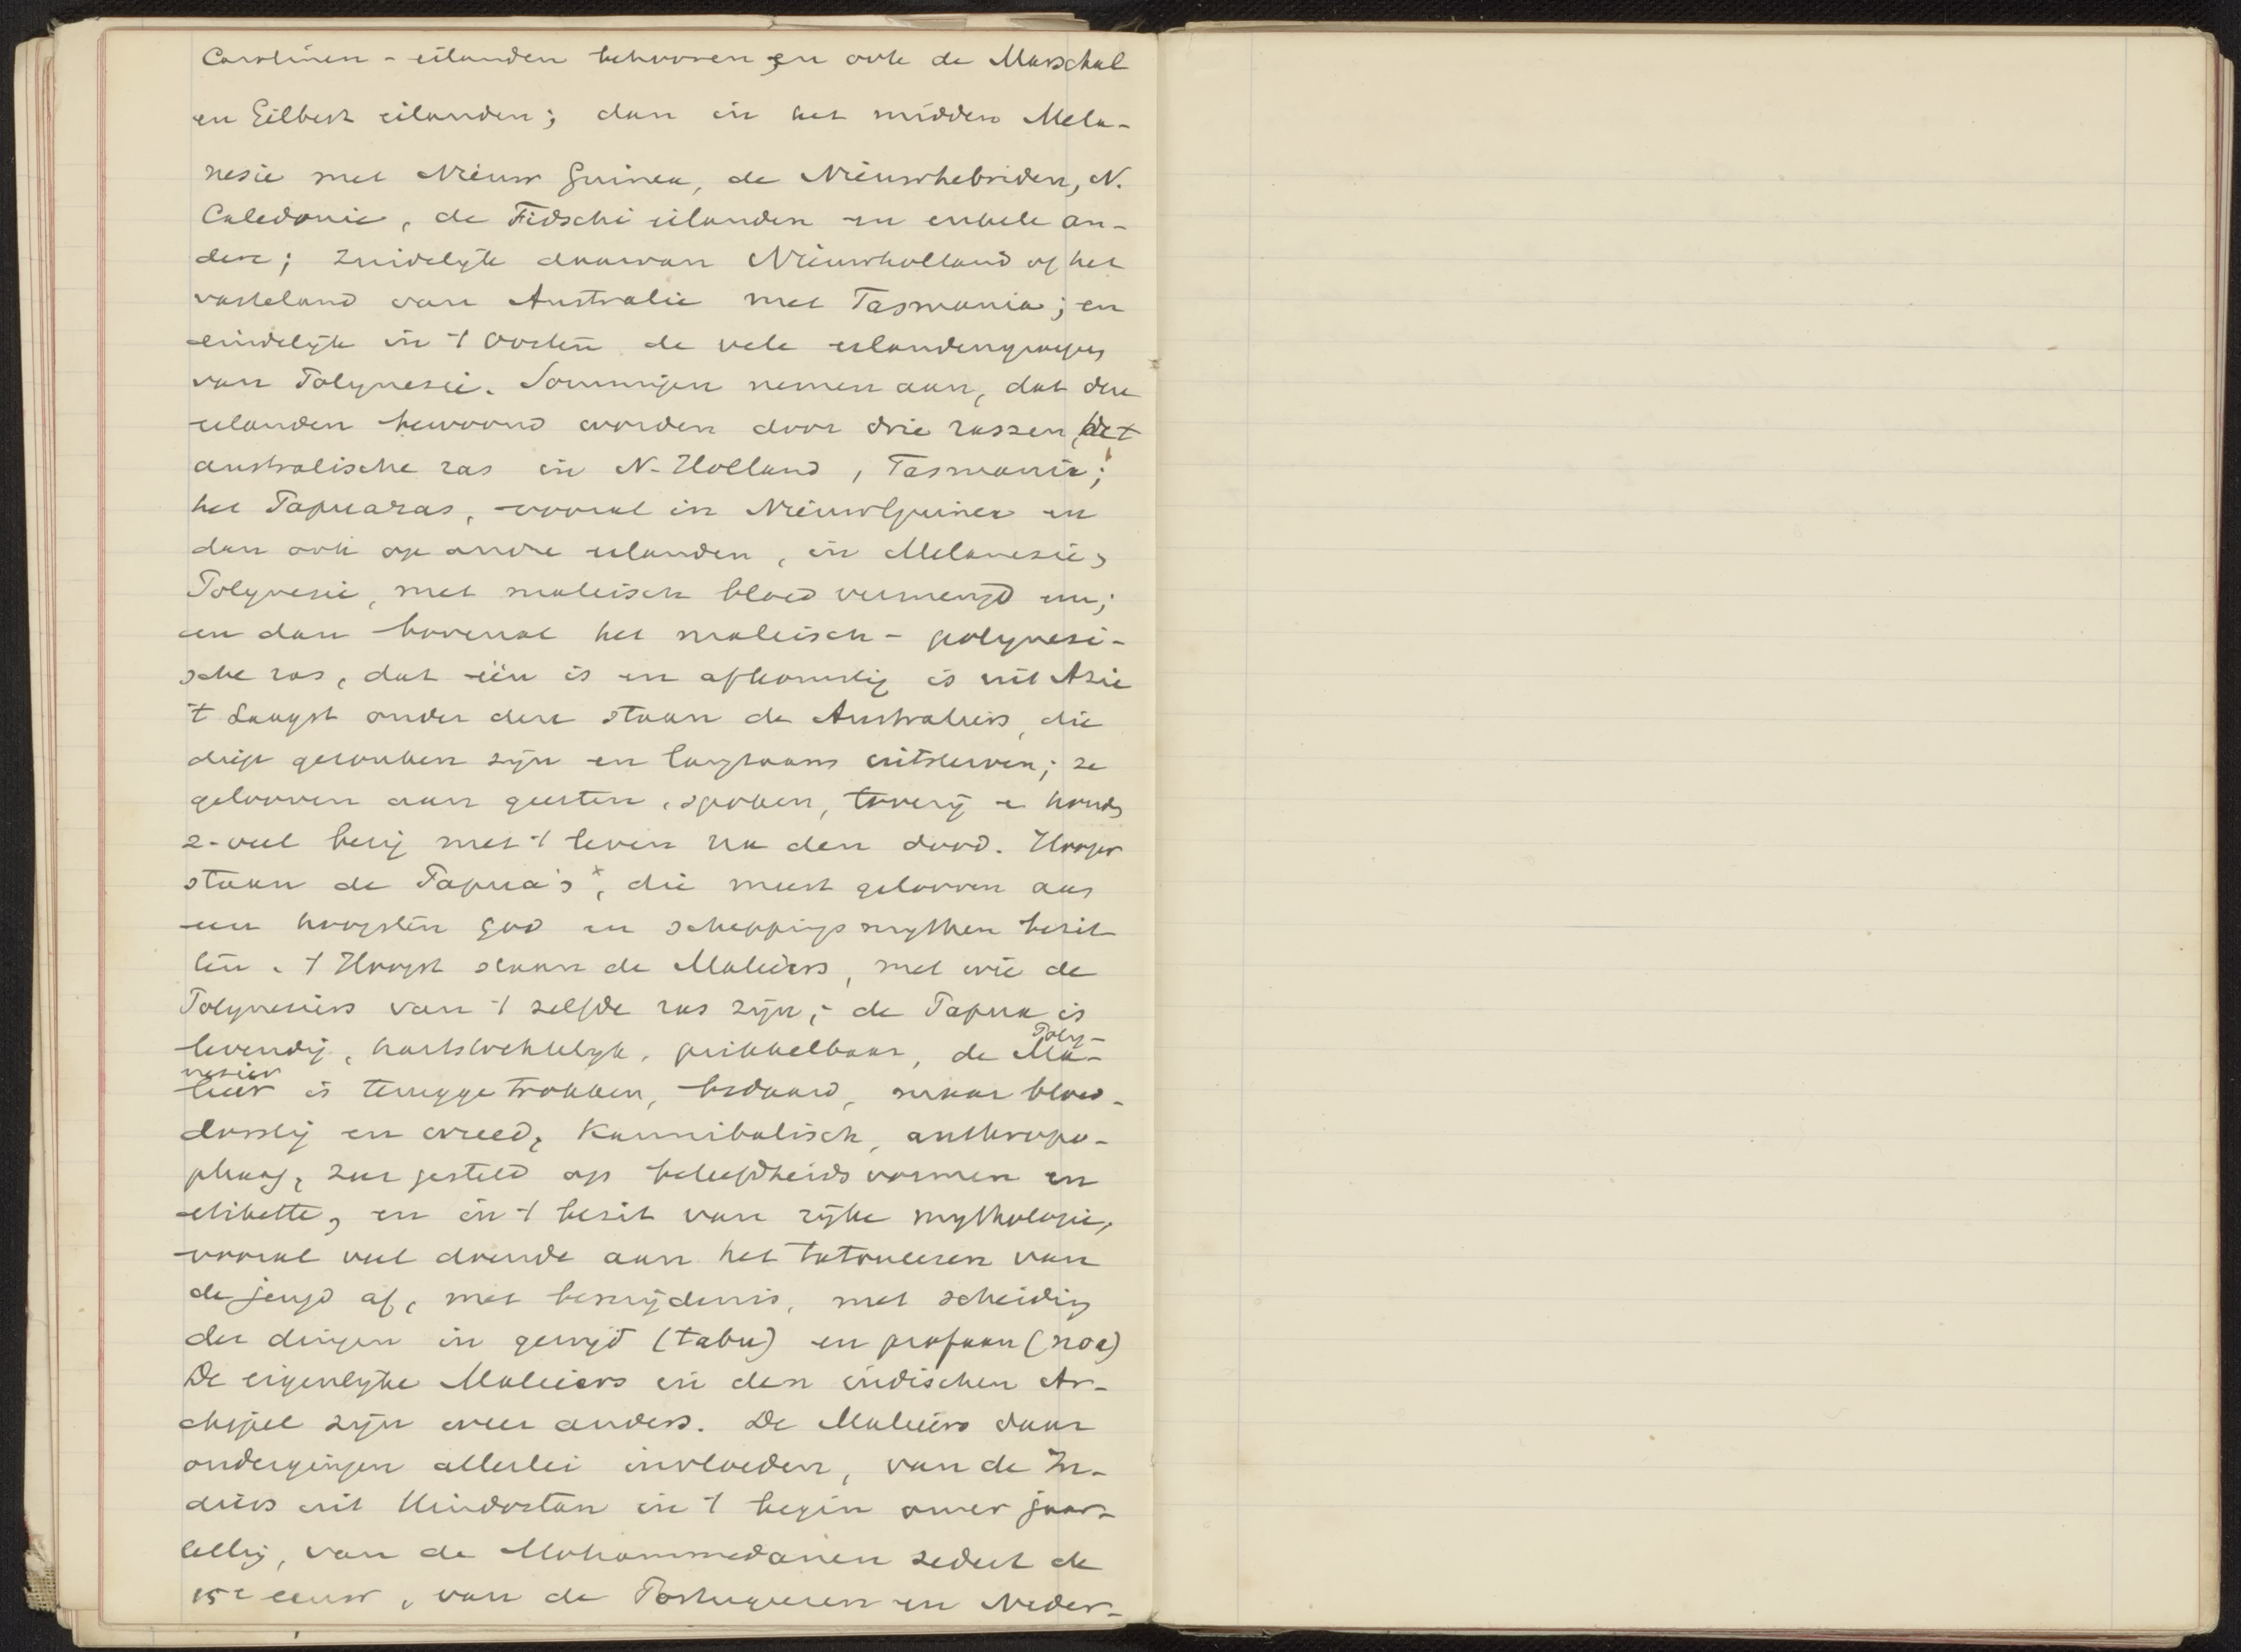 Carolinen - eilanden behooren en ook de Marschal
en Gilbert eilanden; dan in het midden Mela-
nesie met Nieuw Guinea, de Nieuwhebriden, N.
Caledonie, de Fidschi eilanden en enkele an-
dere; zuidelijk daarvan Nieuwholland of het
vasteland van Australie met Tasmania; en
eindelijk in 't Oosten de vele eilandengroepen
van Polynesie. Sommigen nemen aan, dat deze
eilanden bewoond worden door drie rassen, het
australische ras in N-Holland, Tasmanie;
het Papuaras, vooral in NieuwGuinea en
dan ook op andre eilanden, in Melanesie,
Polynesie, met maleisch bloed vermengd enz;
en dan bovenal het maleisch - polynesi-
sche ras, dat één is en afkomstig is uit Azie
't Laagst onder deze staan de Australiers, die
diep gezonken zijn en langzaam uitsterven; ze
gelooven aan geesten, spoken, toverij en houden
z. veel bezig met 't leven na den dood. Hooger
staan de Papua's x, die meest gelooven aan
een hoogsten god en scheppingsmythen bezit-
ten. 't Hoogst staan de Maleiers, met wie de
Polynesiers van 't zelfde ras zijn; de Papua is
levendig, hartstochtelijk, prikkelbaar, de Ma- Poly-
leier nesier is teruggetrokken, bedaard, maar bloed-
dorstig en wreed, Kannibalisch, anthropo-
phaag, zeer gesteld op beleefdheidsvormen en
etikette, en in 't bezit van rijke mythologie,
vooral veel doende aan het tatoueeren van
de jeugd af, met besnijdenis, met scheiding
der dingen in gewijd (tabu) en profaan (noa)
De eigenlijke Maleiers in den indischen Ar-
chipel zijn weer anders. De Maleiers daar
ondergingen allerlei invloeden, van de In-
diers uit Hindostan in 't begin onzer jaar-
telling, van de Mohammedanen sedert de
15e eeuw, van de Portugeezen en Neder-